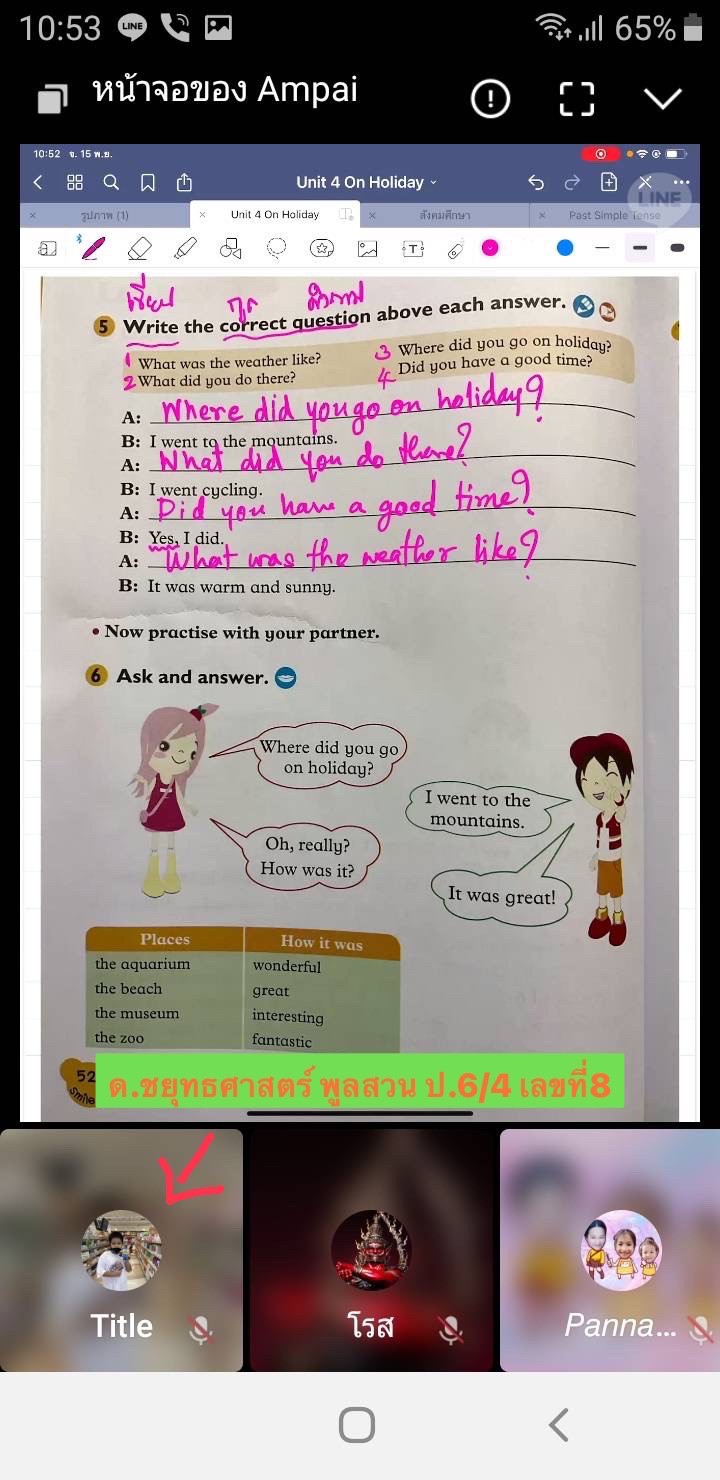 10:53 LINE 65%
หน้าจอของ Ampai
10:52 จ. 15 พ.ย.
Unit 4 On Holiday
LINE
รูปภาพ (1) Unit 4 On Holiday สังคมศึกษา Past Simple Tense
เขียน ถูก คำถาม
5 Write the correct question above each answer.
1 What was the weather like? 3 Where did you go on holiday?
2 What did you do there? 4 Did you have a good time?
A: Where did you go on holiday?
B: I went to the mountains.
A: What did you do there?
B: I went cycling.
A: Did you have a good time?
B: Yes, I did.
A: What was the weather like?
B: It was warm and sunny.
• Now practise with your partner.
6 Ask and answer.
Where did you go
on holiday?
I went to the
mountains.
Oh, really?
How was it?
It was great!
Places How it was
the aquarium wonderful
the beach great
the museum interesting
the zoo fantastic
52
Smile
ด.ชยุทธศาสตร์ พูลสวน ป.6/4 เลขที่8
Title โรส Panna...